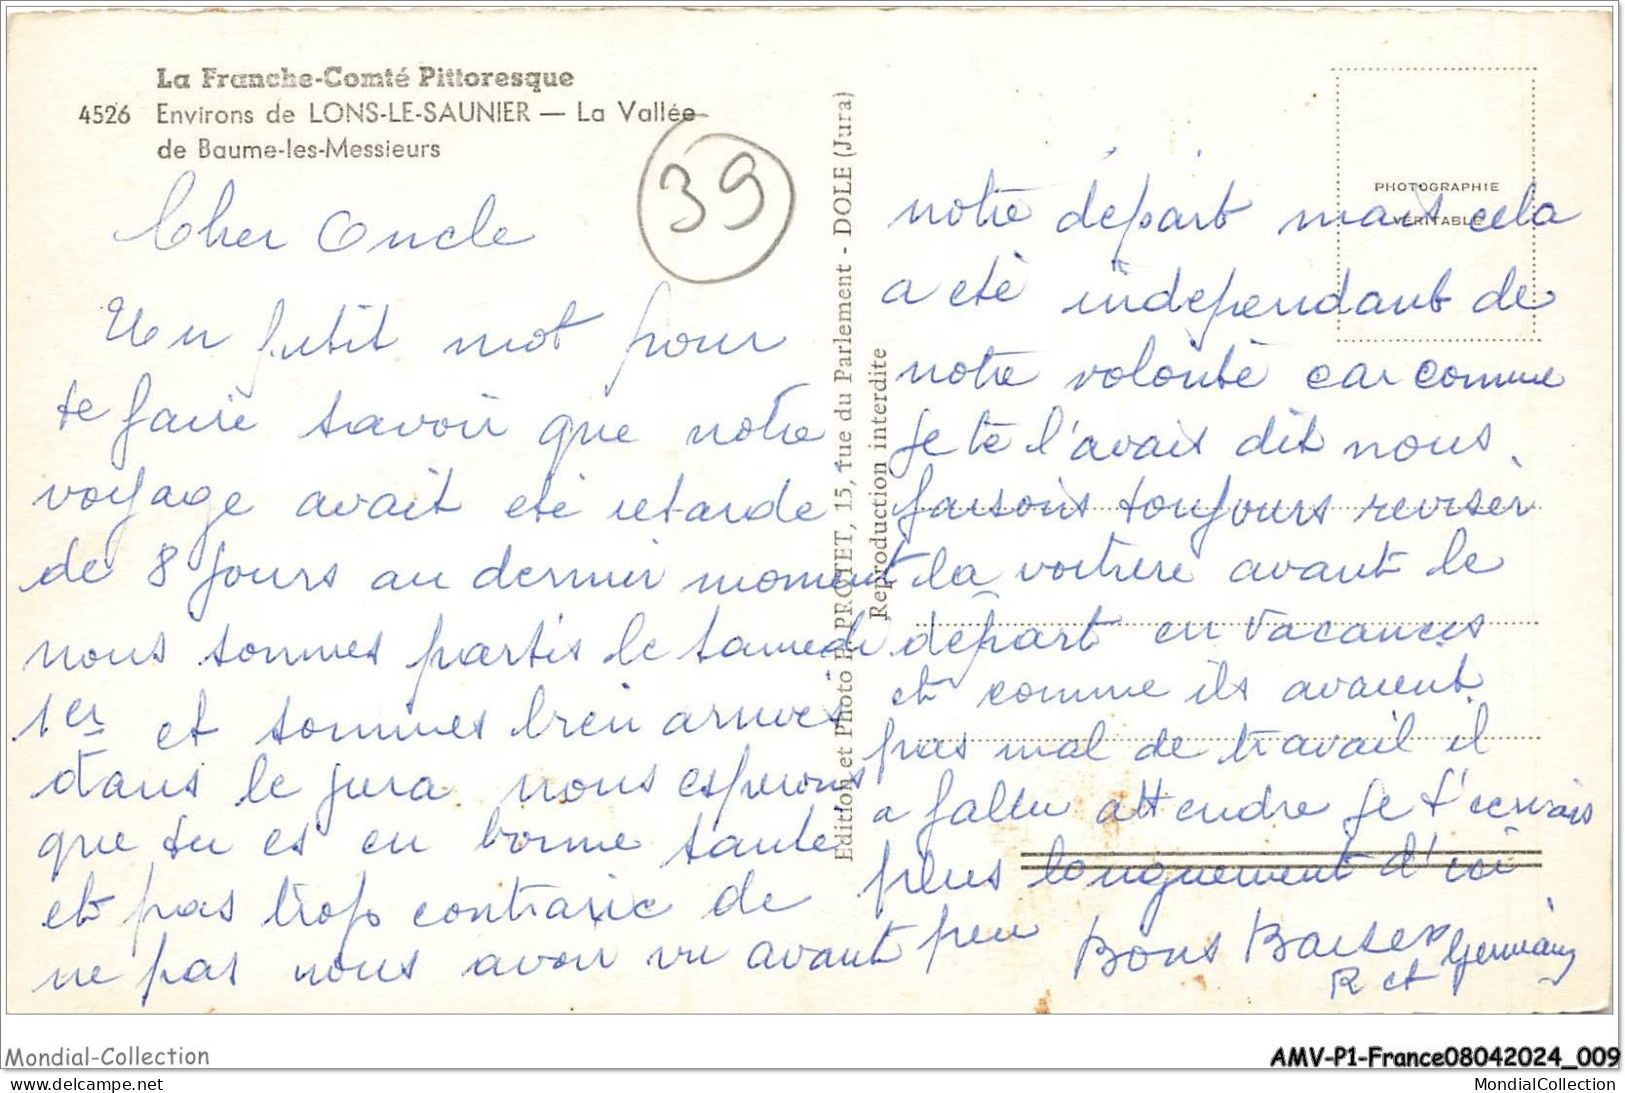 La Franche-Comté Pittoresque
4526 Environs de LONS-LE-SAUNIER — La Vallée
de Baume-les-Messieurs
39
Cher Oncle
Un petit mot pour
te faire savoir que notre
voyage avait été retarde
de 8 jours au dernier moment
nous sommes partis le samedi
1er et sommes bien arrivés
dans le jura nous esperons
que tu es en bonne sante
et pas trop contrarie de
ne pas nous avoir vu avant
Edition et Photo P. PROTET, 15, rue du Parlement - DOLE (Jura)
Reproduction interdite
PHOTOGRAPHIE
VÉRITABLE
notre départ mais cela
a eté independant de
notre volonté car comme
je te l'avais dit nous
faisons toujours reviser
la voiture avant le
départ en vacances
et comme ils avaient
pas mal de travail il
a fallu attendre je t'ecrirais
plus longuement d'ici
peu Bons Baisers
R et Germaine
Mondial-Collection
delcampe.net
AMV-P1-France08042024_009
MondialCollection